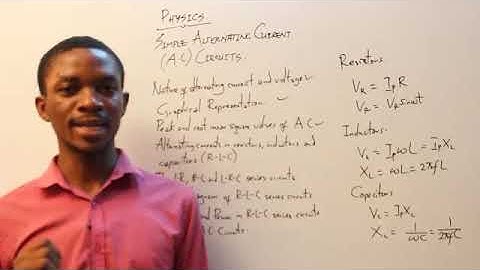 PHYSICS
SIMPLE ALTERNATING CURRENT
(A.C) CIRCUITS.
Nature of alternating current and voltage ✓
Graphical Representation ✓
Peak and root mean square values of A.C ✓
Alternating currents in resistors, inductors and
capacitors (R-L-C)
L-R, R-C and L-R-C series circuits
of R-L-C series circuits
and Power in R-L-C series circuits
C Circuits.
Resistors
V_R = I_0R
V_R = V_0 sin ωt
Inductors:
V_L = I_0ωL = I_0X_L
X_L = ωL = 2πfL
Capacitors
X_C = 1/ωC = 1/2πfC